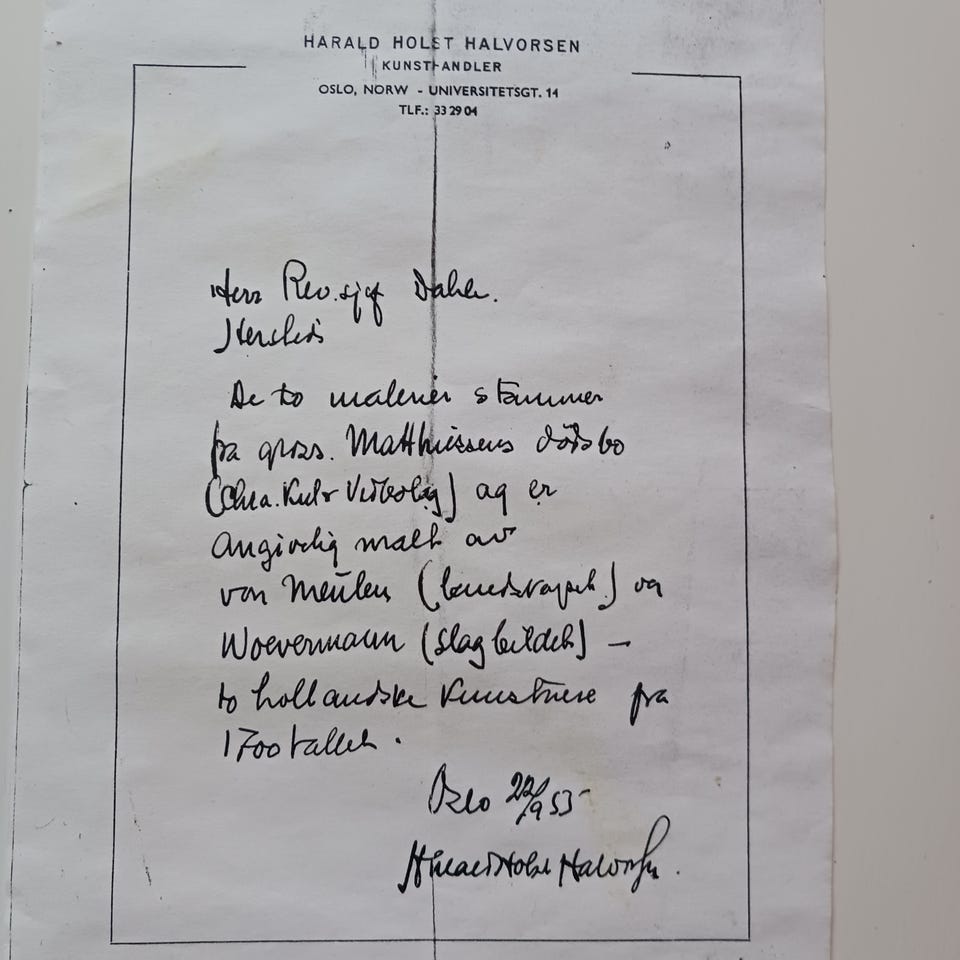 HARALD HOLST HALVORSEN
KUNSTHANDLER
OSLO, NORW - UNIVERSITETSGT. 14
TLF.: 33 29 04
Herr Rev. sjef Dahle.
Herslebs
De to malerier stammer
fra gross. Matthiessens dödsbo
og er
angivelig malt av
van Meulen (landskapet) og
Woevermann (slagbildet) —
to hollandske kunstnere fra
1700 tallet.
Oslo 22/9 53
Harald Holst Halvorsen.